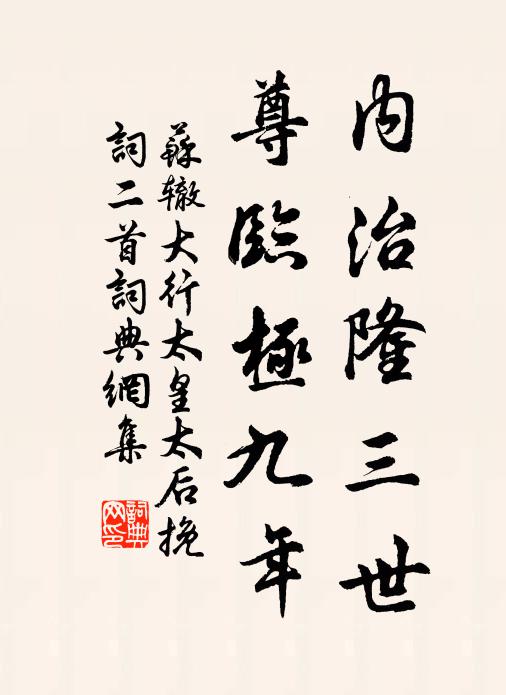 内治隆三世
尊臨極九年
蘇辙大行太皇太后挽
詞二首詞典網集
詞典網印